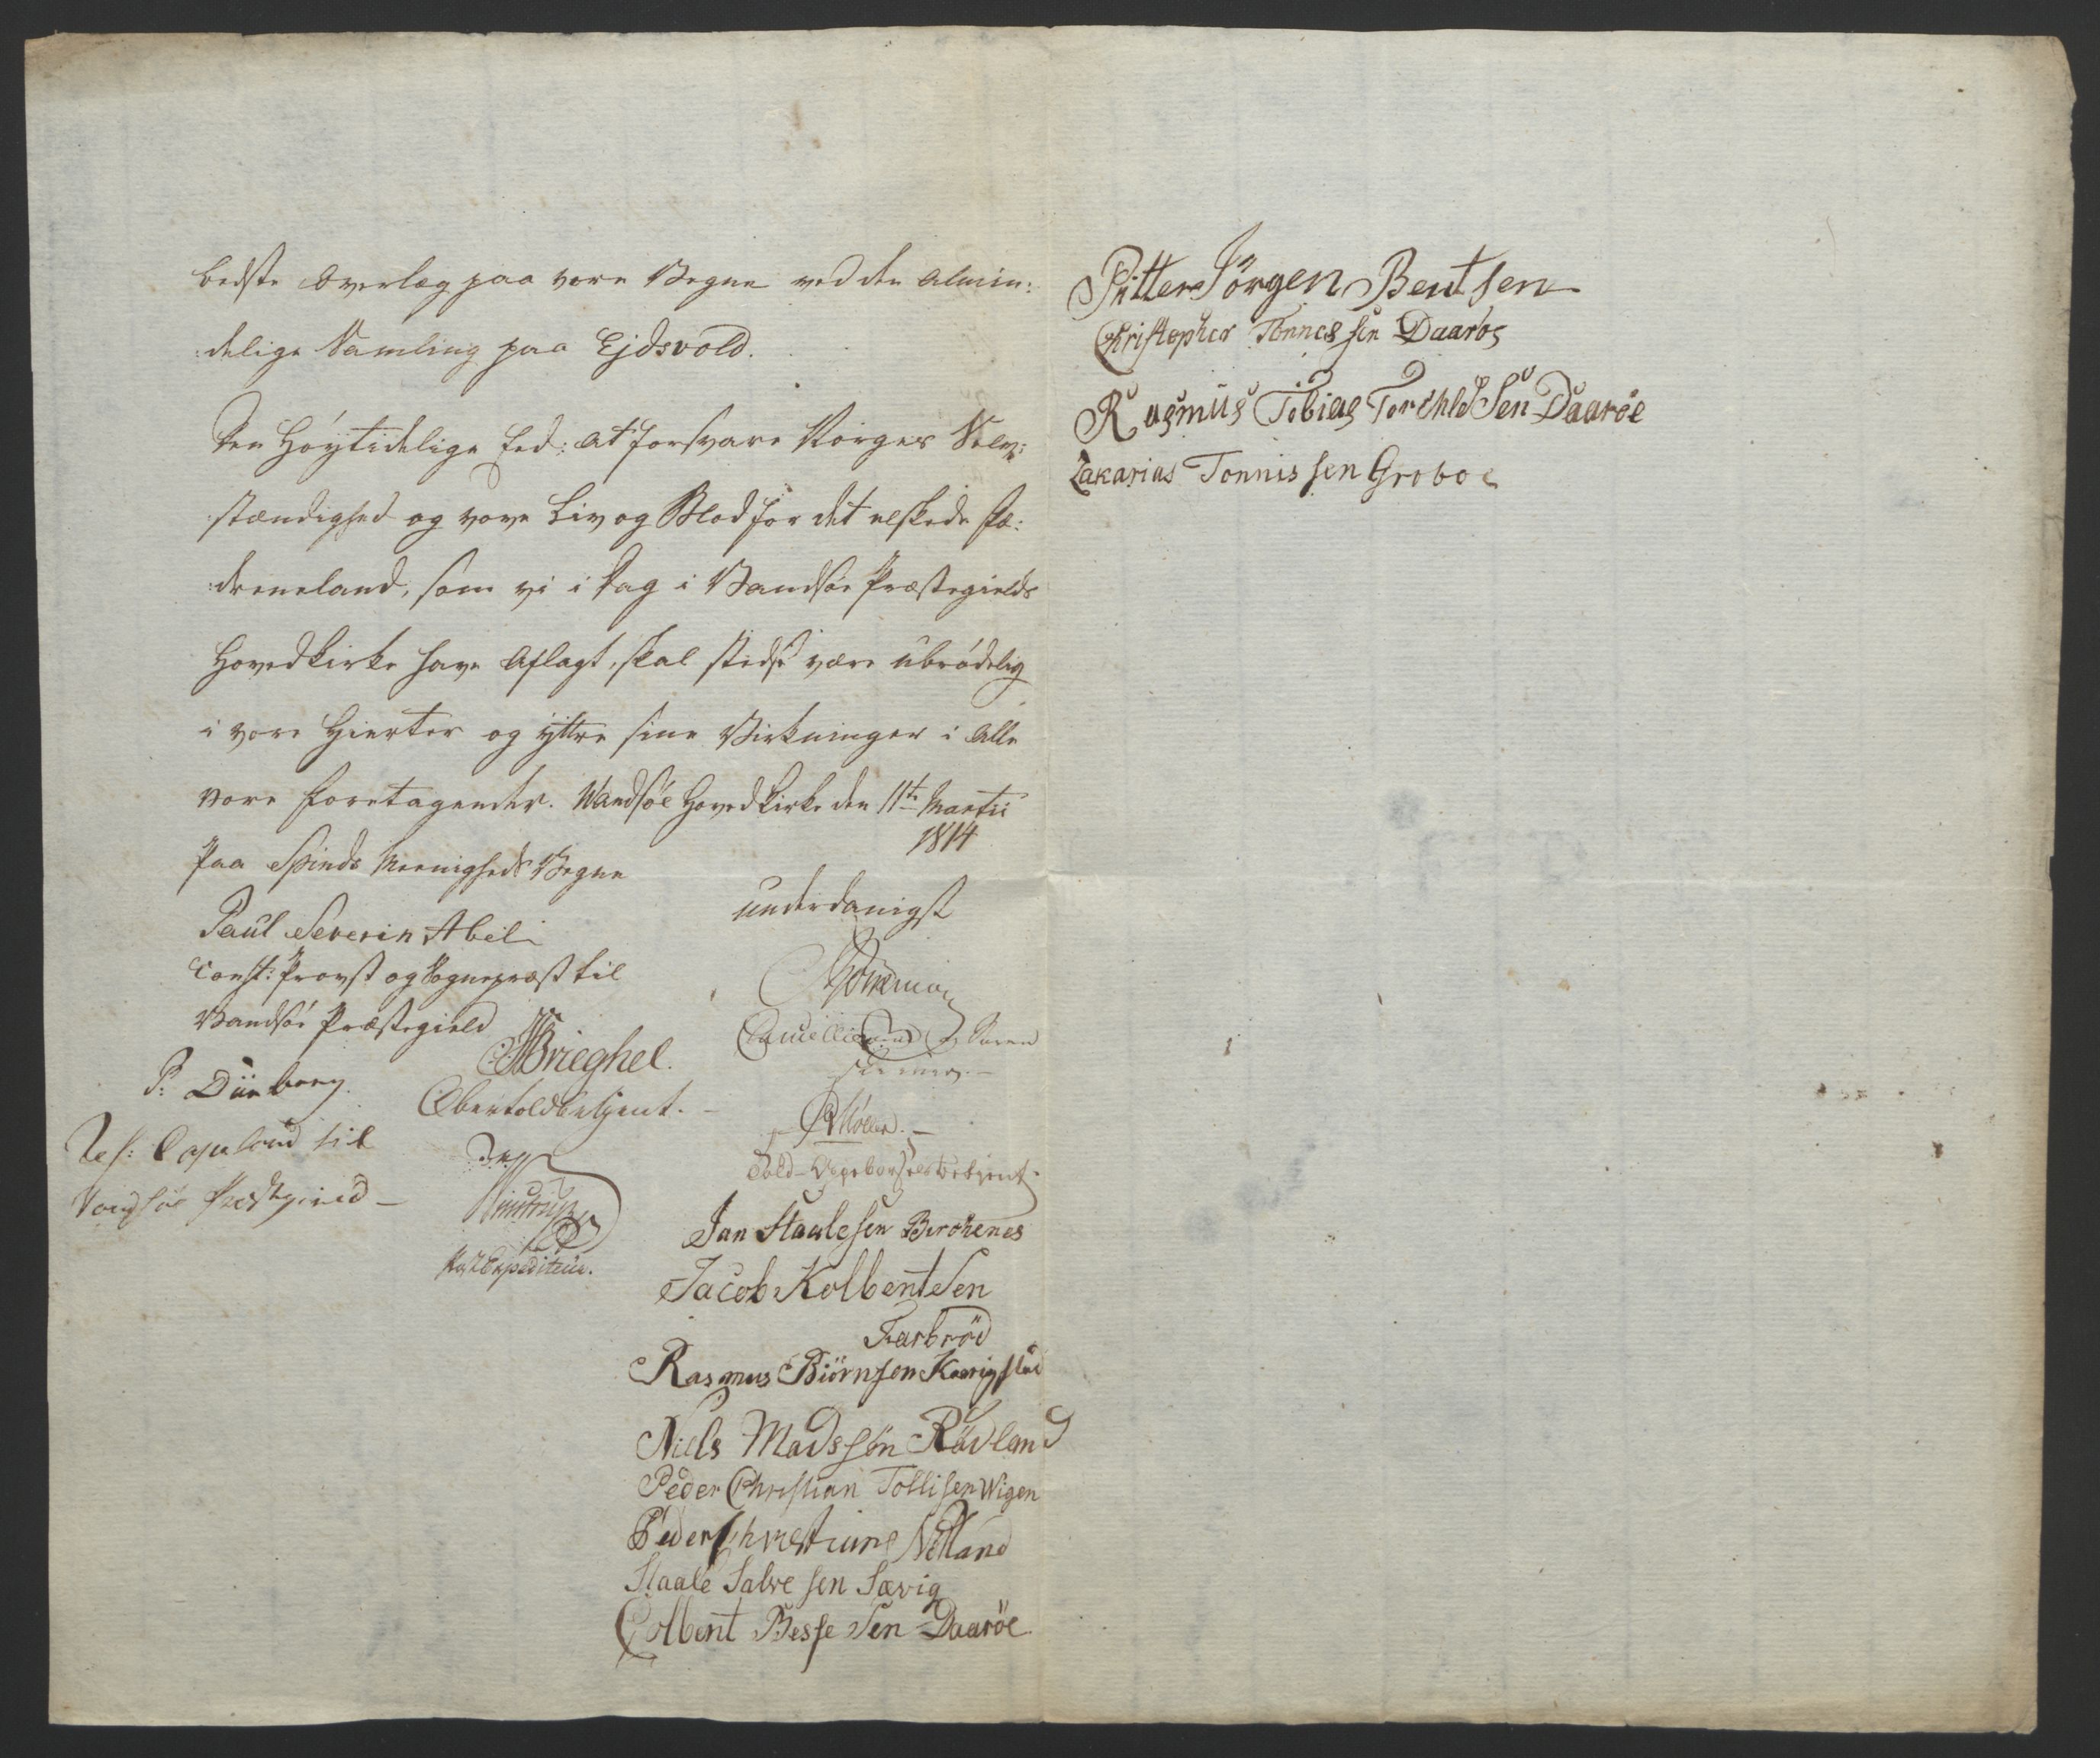 bedste Overlæg paa vore Vegne ved den almin:
:delige Samling paa Ejdsvold.
Den Høytidelige Eed: at forsvare Norges Selv:
:stændighed og vove Liv og Blod for det elskede Fæ:
:dreneland, som vi i Dag i Vandsøe Præstegields
Hovedkirke have aflagt, skal stedse være ubrødelig
i vore Hierter og yttre sine Virkninger i alle
vore Foretagender. Wandsøe Hovedkirke den 11te Martii
1814
Paa Spinds Meenigheds Vegne
Paul Severin Abel
Const: Provst og Sognepræst til
Vandsøe Præstegield
P: Düeborg.
Res: Capeland til
Præstegield
Brieghel.
Obertoldbetjent.
Postexpediteur.
underdanigst
Møller.
Told- Betjent.
Jan Staalesen Birchenes
Jacob KolbentSen
Farbröd
Rasmus Biörnsen Kaarigstad
Niels Madssön Rödland
Peder Christian Tollisen Wigen
Peder Christians Netland
Staale Salvesen Sævig
Colbent Besse Sen Daaröe
Pitter Jörgen Bentsen
Christopher Tønnessen Daaröe
Rasmus Tobias TorchildSen Daaröe
Zakarias Tonnissen Groboe